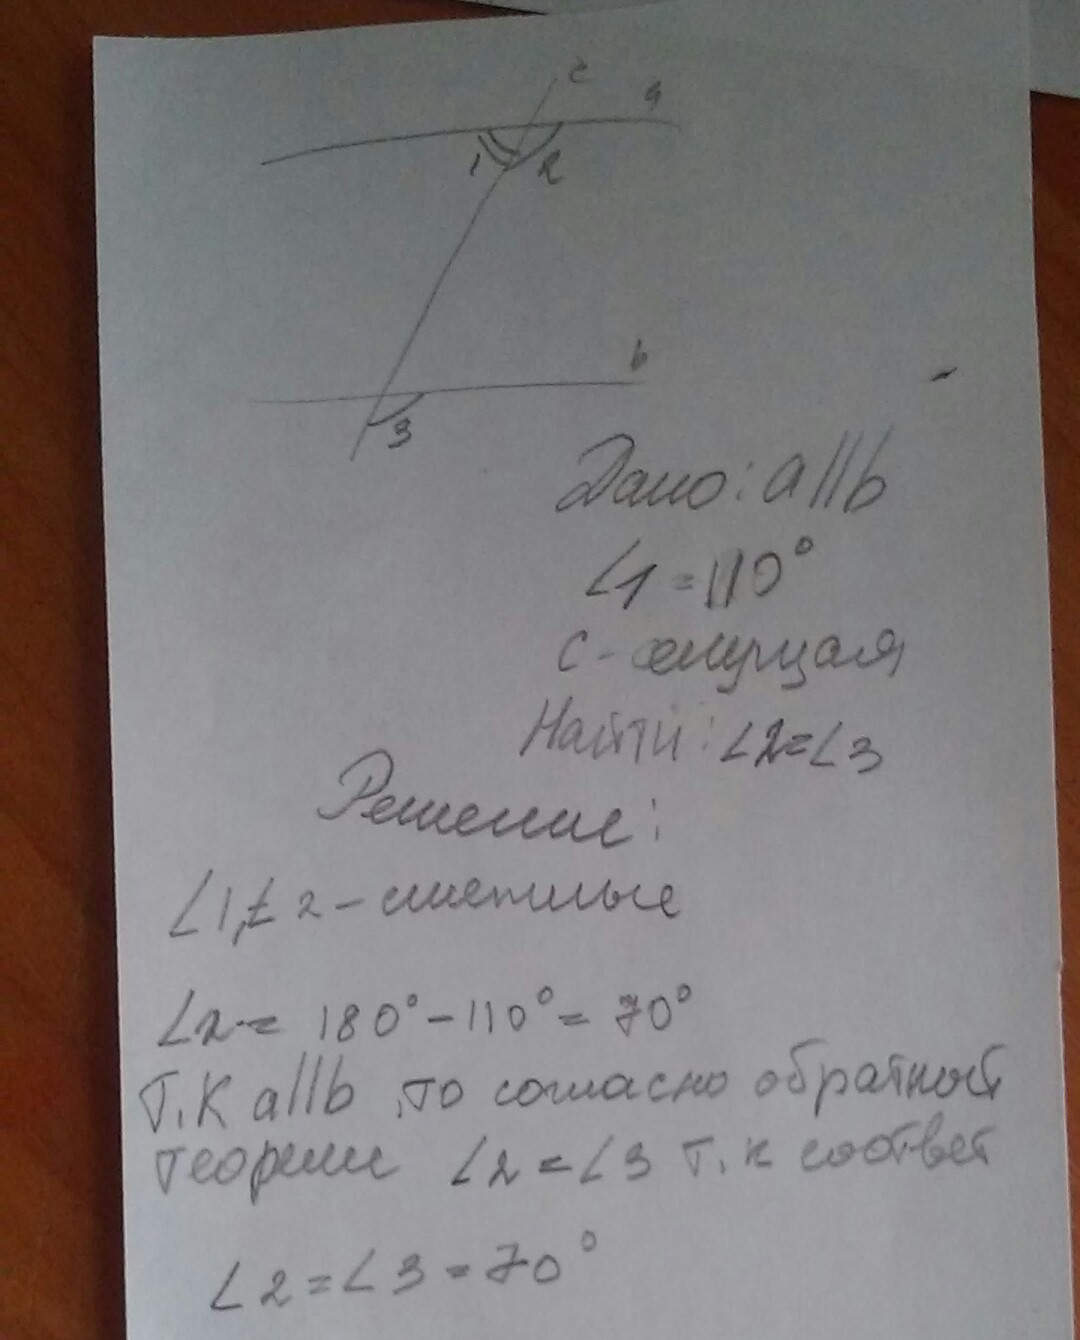 c
a
1 2
b
3
Дано: a||b
∠1=110°
c-секущая
Найти: ∠2=∠3
Решение:
∠1,∠2-смежные
∠2= 180°-110°=70°
Т.К a||b ,то согласно обратной
теореме ∠2=∠3 т.к соответ
∠2=∠3=70°